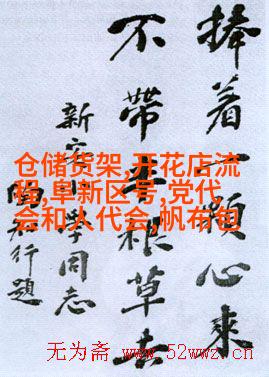 捧着一顆心來
不帶根草去
新安学同志
陶知行題
仓储货架,开花店流
程,阜新区号,党代
会和人代会,帆布包
无为斋 www.52wwz.cn